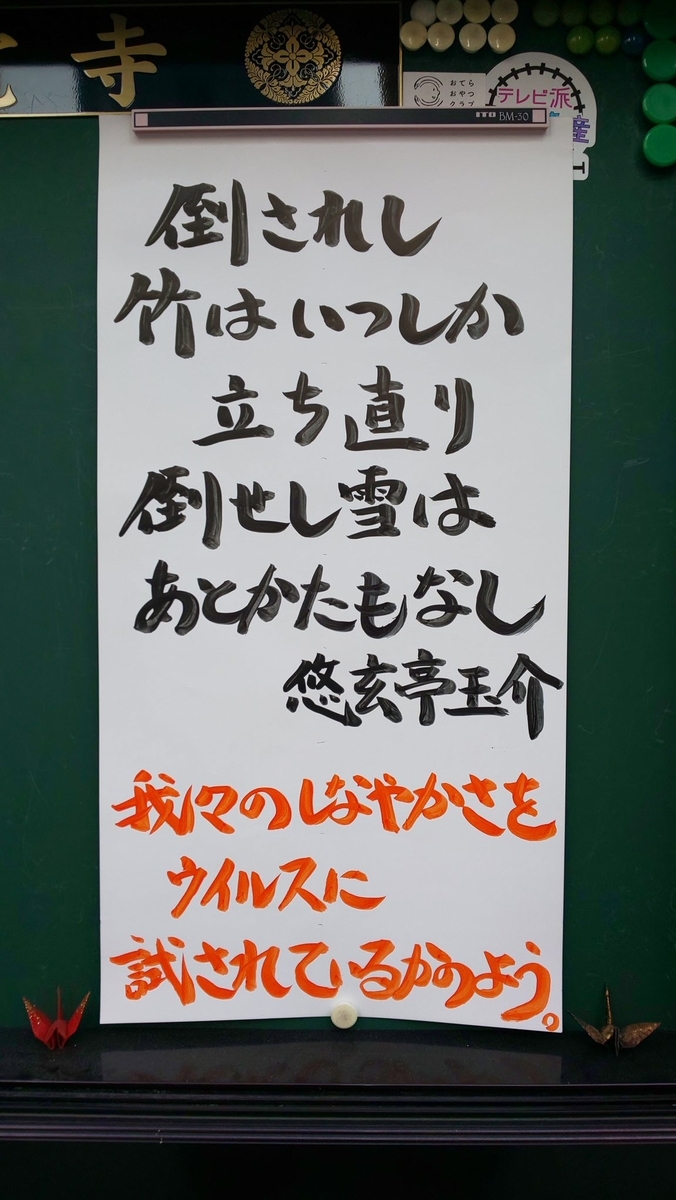 寺
おてら
おやつ
クラブ
テレビ派
産
ITO BM-30
倒されし
竹はいつしか
立ち直り
倒せし雪は
あとかたもなし
悠玄亭玉介
我々のしなやかさを
ウイルスに
試されているかのよう。